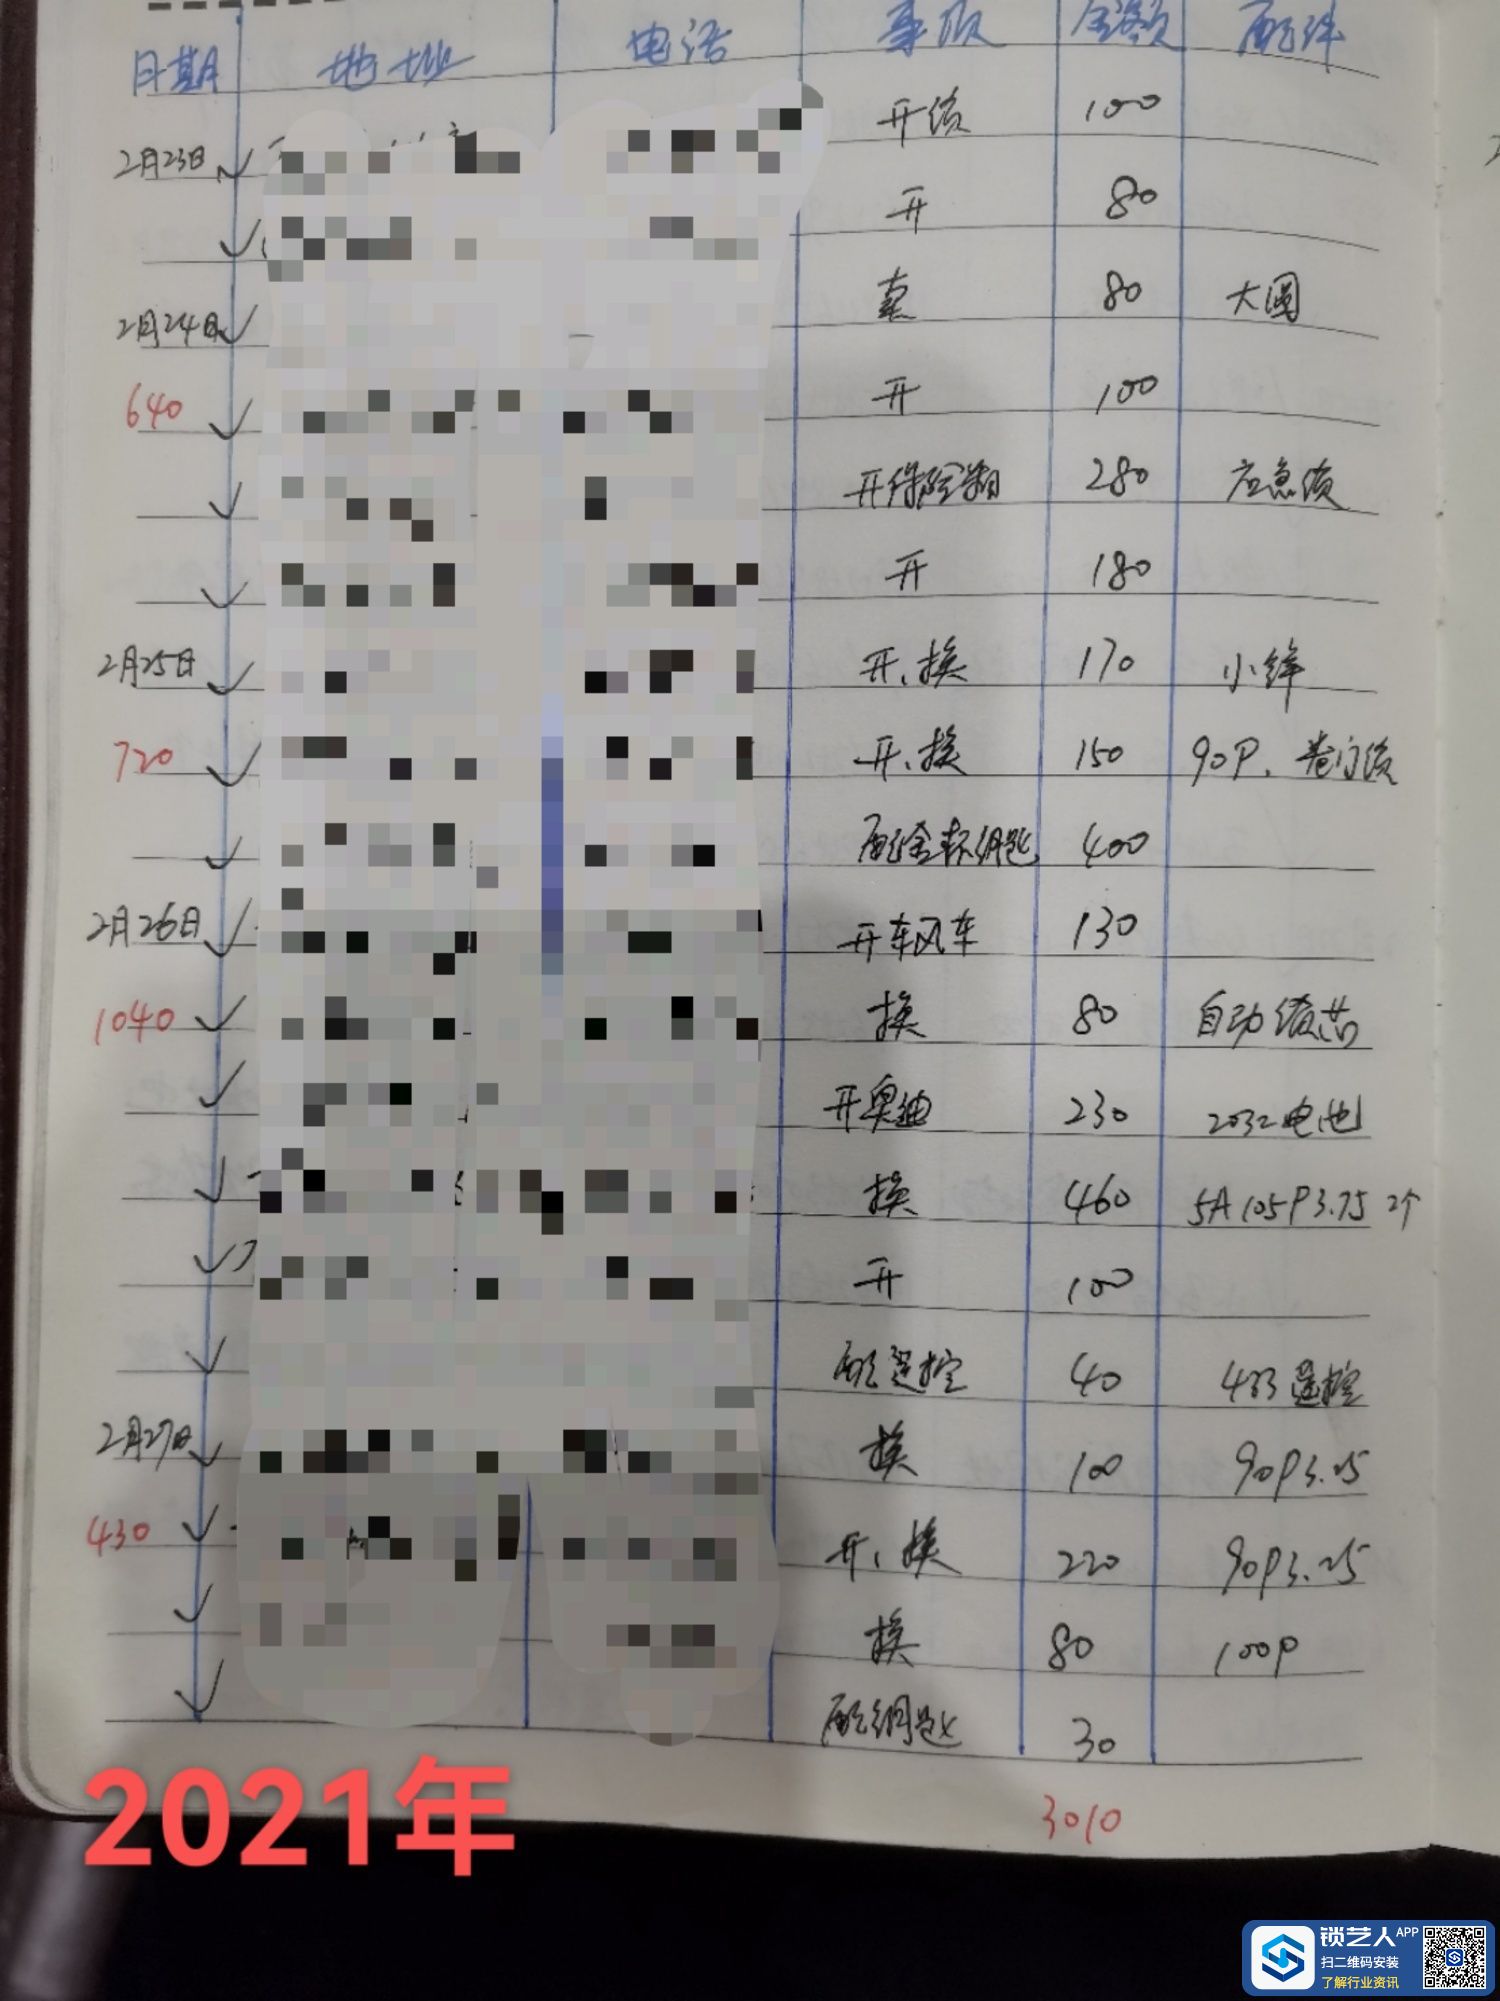 日期 地址 电话 事项 金额 配件
2月23日 开锁 100
开 80
2月24日 卖 80 大图
640 开 100
开保险箱 280 应急锁
开 180
2月25日 开、换 170 小锌
720 开、换 150 90P、卷门锁
配金杯钥匙 400
2月26日 开东风车 130
1040 换 80 自动锁芯
开奥迪 230 2032电池
换 460 5A105P3.75 2个
开 100
配遥控 40 433遥控
2月27日 换 100 90P3.25
430 开、换 220 90P3.25
换 80 100P
配钥匙 30
3010
2021年
锁艺人APP
扫二维码安装
了解行业资讯